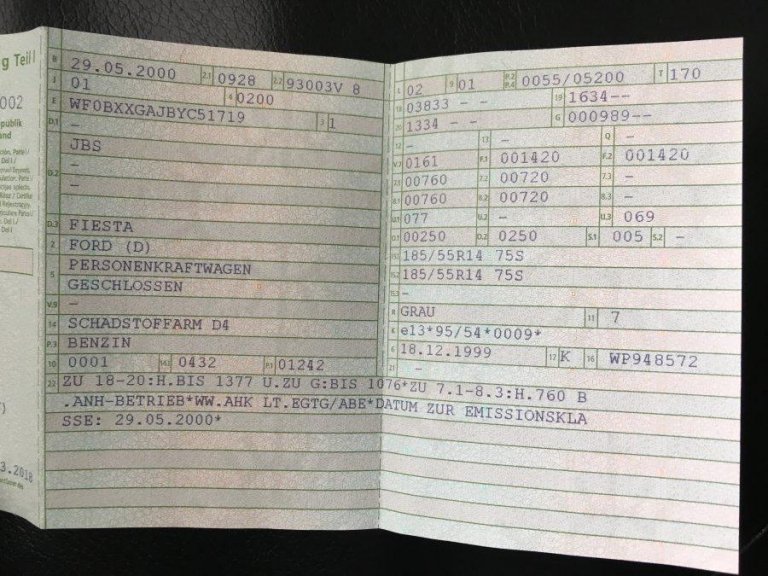 g Teil I
002
publik
and
3.2018
B 29.05.2000 2.1 0928 2.2 93003V 8
J 01 4 0200
E WF0BXXGAJBYC51719 3 1
D.1 -
JBS
D.2 -
-
D.3 FIESTA
2 FORD (D)
5 PERSONENKRAFTWAGEN
GESCHLOSSEN
V.9 -
14 SCHADSTOFFARM D4
P.3 BENZIN
10 0001 14.1 0432 P.1 01242
22 ZU 18-20:H.BIS 1377 U.ZU G:BIS 1076*ZU 7.1-8.3:H.760 B
.ANH-BETRIEB*WW.AHK LT.EGTG/ABE*DATUM ZUR EMISSIONSKLA
SSE: 29.05.2000*
L 02 9 01 P.2 P.4 0055/05200 T 170
18 03833 - - 19 1634--
20 1334 - - G 000989--
12 - 13 - Q -
V.7 0161 F.1 001420 F.2 001420
7.1 00760 7.2 00720 7.3 -
8.1 00760 8.2 00720 8.3 -
U.1 077 U.2 - U.3 069
O.1 00250 O.2 0250 S.1 005 S.2 -
15.1 185/55R14 75S
15.2 185/55R14 75S
15.3 -
R GRAU 11 7
K e13*95/54*0009*
6 18.12.1999 17 K 16 WP948572
21 -